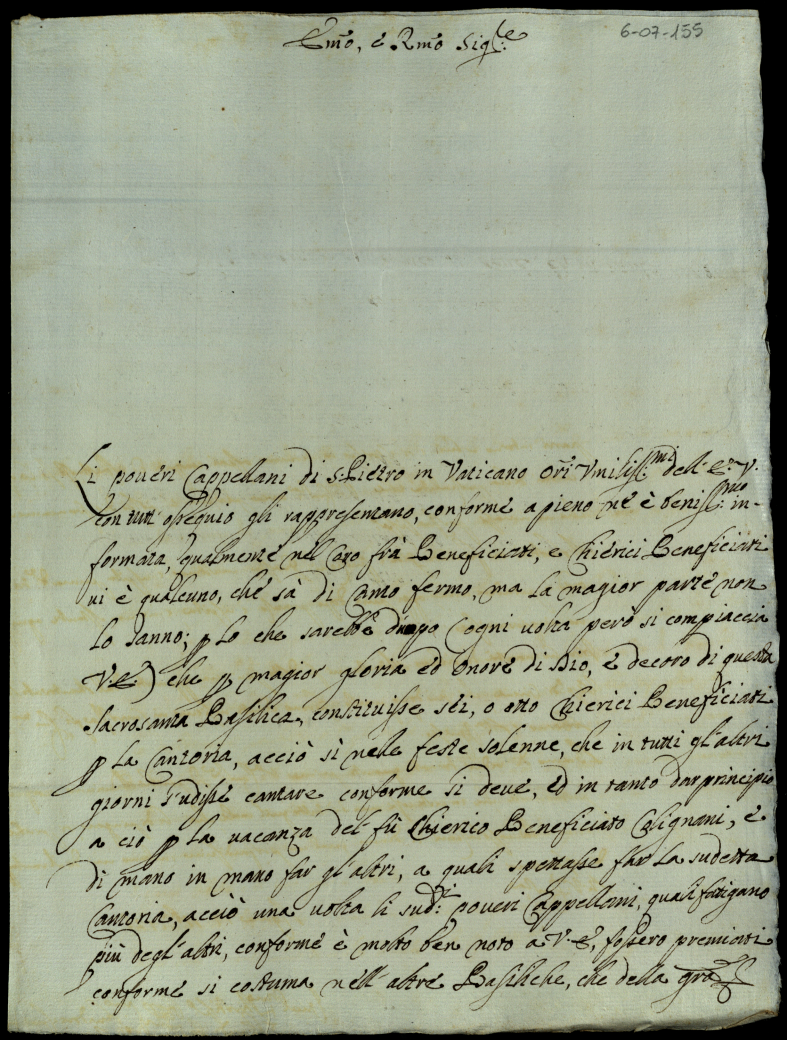 6-07-155
Emo, e Rmo Sigre
Li poueri Cappellani di S. Pietro in Vaticano Ori Vmiliss:mi dell' E: V:
con tutt' osseguio gli rappresentano, conforme apieno n'è è beniss:mo in-
formata, qualmente nel Coro frà Beneficiati, e Chierici Beneficiati
ui è qualcuno, che sà di Canto fermo, ma la magior parte non
lo sanno; p lo che sarebbe duopo (ogni uolta però si compiaccia
V. E.) che p magior gloria ed onore di Dio, e decoro di questa
Sacrosanta Basilica, constituisse sei, o otto Chierici Beneficiati
p la Cantoria, acciò sì nelle feste solenne, che in tutti gl'altri
giorni s'udisse cantare conforme si deue, ed in tanto dar principio
a ciò p la uacanza del fù Chierico Beneficiato Clignani, e
di mano in mano far gl'altri, a quali spettasse far la sudetta
Cantoria, acciò una uolta li sud:i poueri Cappellani, quali fatigano
più degl'altri, conforme è molto ben noto a V. E., fossero premiati
conforme si costuma nell' altre Basiliche, che della gra